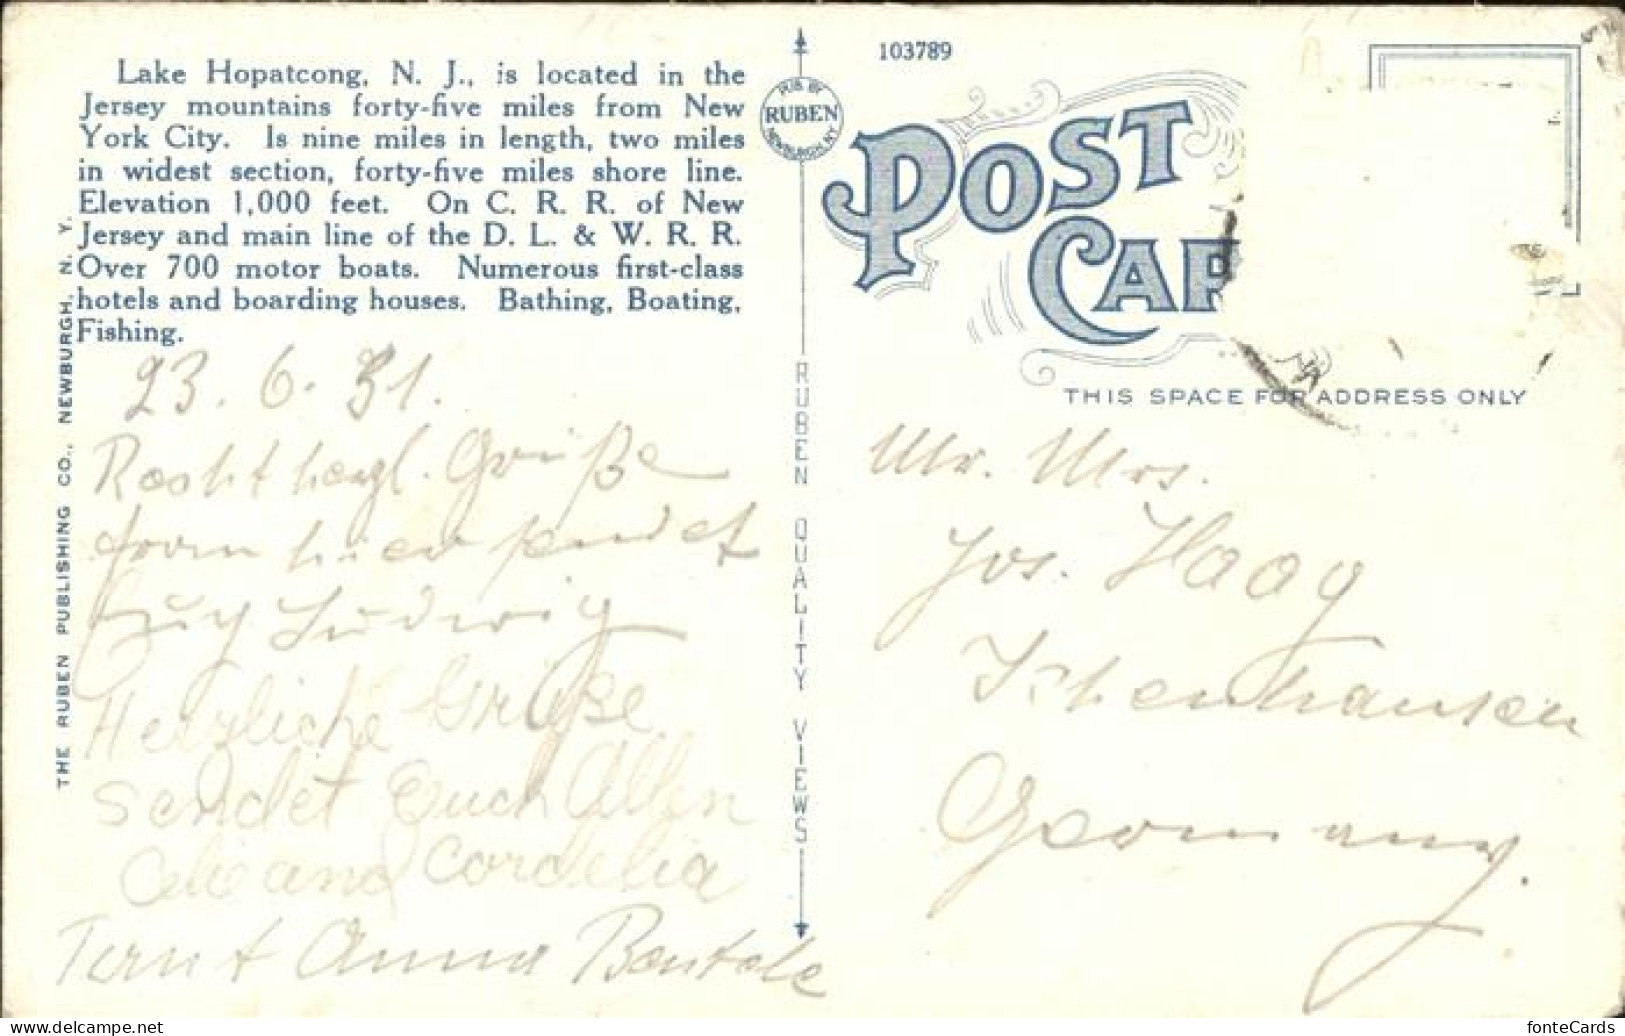 Lake Hopatcong, N. J., is located in the
Jersey mountains forty-five miles from New
York City. Is nine miles in length, two miles
in widest section, forty-five miles shore line.
Elevation 1,000 feet. On C. R. R. of New
Jersey and main line of the D. L. & W. R. R.
Over 700 motor boats. Numerous first-class
hotels and boarding houses. Bathing, Boating,
Fishing.
THE RUBEN PUBLISHING CO., NEWBURGH, N. Y.
23. 6. 31.
Recht herzl. Grüße
from hier sendet
Ludwig
Herzliche Grüße
sendet Euch Allen
and Cordelia
Anna
PUB. BY
RUBEN
NEWBURGH, N.Y.
RUBEN QUALITY VIEWS
103789
POST
CAR
THIS SPACE FOR ADDRESS ONLY
Mr. Mrs.
Jos. Haag
Ichenhausen
Germany.
fonteCards